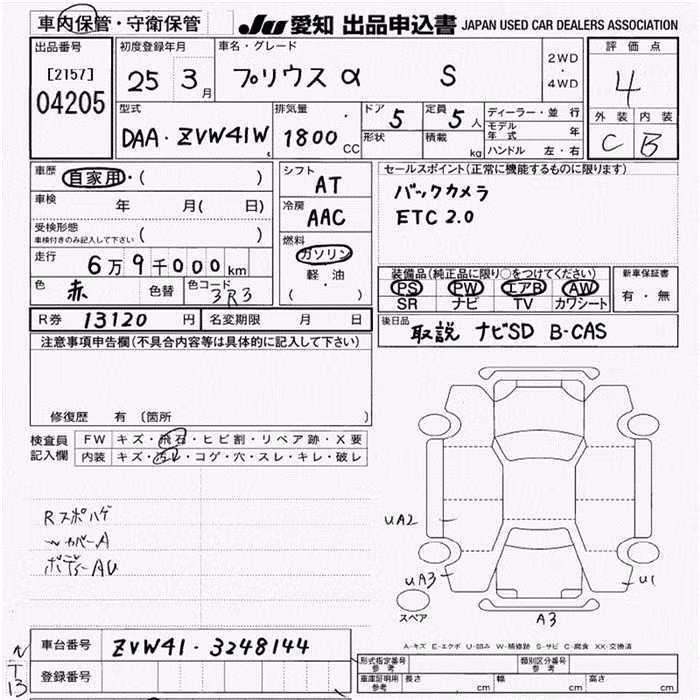 車内保管・守衛保管 JU 愛知 出品申込書 JAPAN USED CAR DEALERS ASSOCIATION
出品番号 [2157] 04205
初度登録年月 25 3月
車名・グレード プリウスα S 2WD・4WD
評価点 4
外装 C 内装 B
型式 DAA-ZVW41W
排気量 1800CC
ドア 5 形状
定員 5人 積載 kg
ディーラー・並行
モデル年式 年
ハンドル 左・右
車歴 自家用・( )
車検 年 月( 日)
受検形態
車検付きのみ記入して下さい ( )
走行 6万9千000km
色 赤 色替 色コード 3R3
シフト AT
冷房 AAC
燃料 ガソリン
軽・油
( ・ )
セールスポイント(正常に機能するものに限ります)
バックカメラ
ETC 2.0
装備品(純正品に限り○をつけてください)
PS PW エアB AW
SR ナビ TV カワシート
新車保証書
有・無
R券 13120円 名変期限 月 日
後日品 取説 ナビSD B-CAS
注意事項申告欄(不具合内容等は具体的に記入して下さい)
修復歴 有 〔箇所 〕
検査員記入欄
FW キズ・飛石・ヒビ割・リペア跡・X要
内装 キズ・汚レ・コゲ・穴・スレ・キレ・破レ
Rスポハゲ
〃カバーA
ボディーAU
UA2
UA3
U1
A3
スペア
A-キズ E-エクボ U-凹み W-補修跡 S-サビ C-腐食 XX-交換済
車台番号 ZVW41-3248144
登録番号
型式指定番号 参考 類別区分番号 参考
車庫証明用 参考 長さ cm 幅 cm 高さ cm
T
13